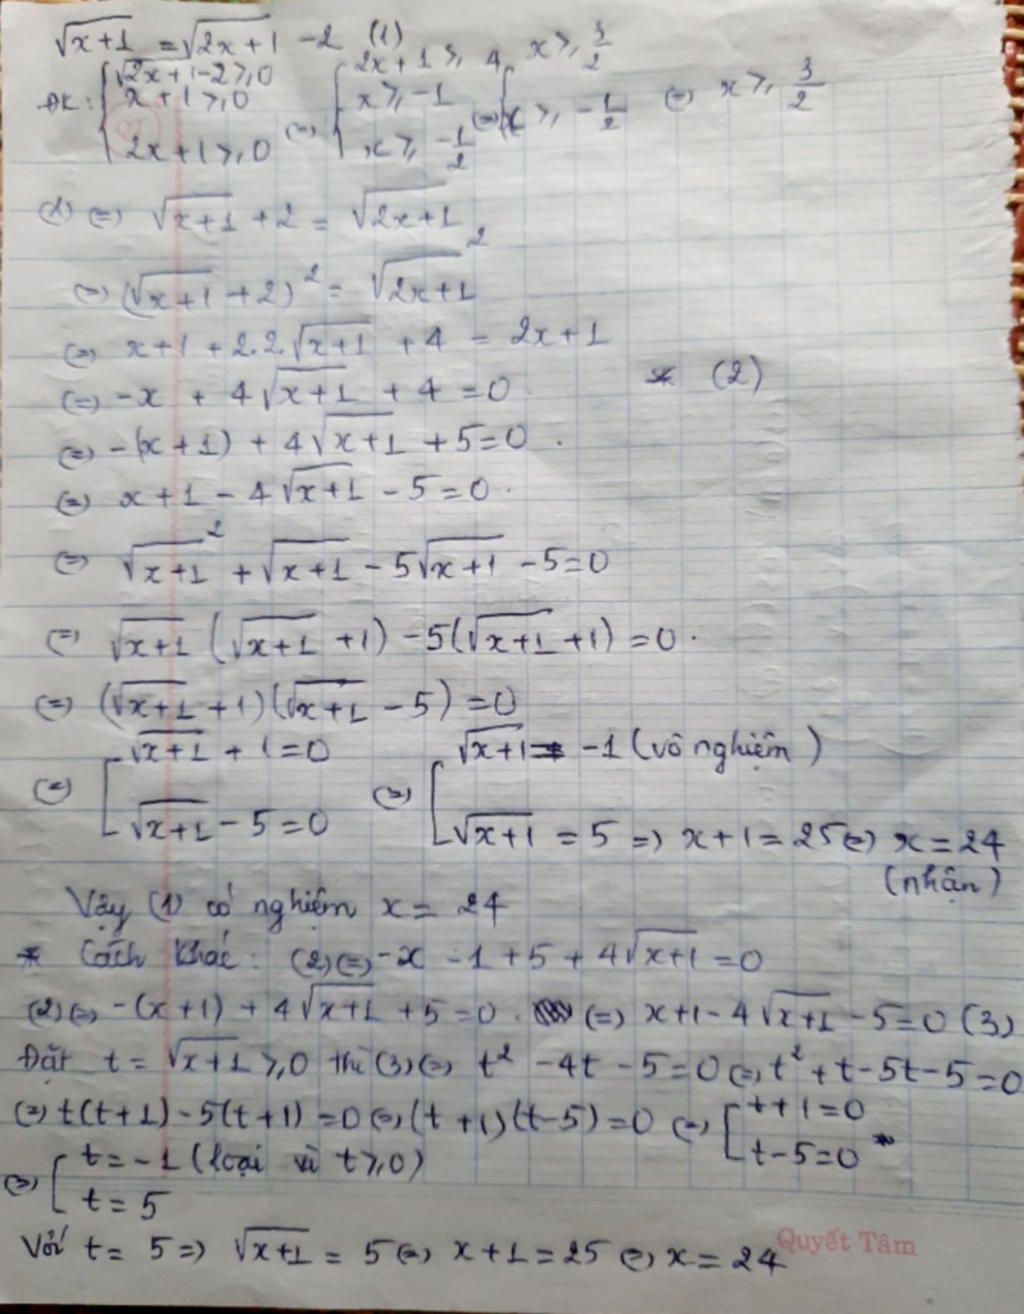 √x+1 = √2x+1 - 2 (1)
ĐK: { √2x+1-2 ≥ 0 (=) { 2x+1 ≥ 4 (=) { x ≥ 3/2 (=) x ≥ 3/2
x+1 ≥ 0 x ≥ -1 x ≥ -1/2
2x+1 ≥ 0 x ≥ -1/2
(1) (=) √x+1 + 2 = √2x+1
(=) (√x+1 + 2)² = √2x+1²
(=) x+1 + 2.2.√x+1 + 4 = 2x+1
(=) -x + 4√x+1 + 4 = 0 * (2)
(=) -(x+1) + 4√x+1 + 5=0.
(=) x+1 - 4√x+1 - 5=0.
(=) √x+1² + √x+1 - 5√x+1 - 5=0
(=) √x+1 (√x+1 +1) - 5(√x+1 +1) = 0.
(=) (√x+1 +1)(√x+1 - 5) = 0
(=) [ √x+1 + 1=0 (=) [ √x+1 = -1 (vô nghiệm)
√x+1 - 5 = 0 √x+1 = 5 =) x+1 = 25 (=) x = 24
(nhận)
Vậy (1) có nghiệm x = 24
* Cách khác: (2) (=) -x - 1 + 5 + 4√x+1 = 0
(2) (=) -(x+1) + 4√x+1 + 5 = 0. (=) x+1 - 4√x+1 - 5=0 (3)
Đặt t = √x+1 ≥ 0 thì (3) (=) t² - 4t - 5 = 0 (=) t² + t - 5t - 5 = 0
(=) t(t+1) - 5(t+1) = 0 (=) (t+1)(t-5) = 0 (=) [ t+1=0
t-5=0
(=) [ t = -1 (loại vì t ≥ 0)
t = 5
Với t = 5 =) √x+1 = 5 (=) x+1 = 25 (=) x = 24
Quyết Tâm